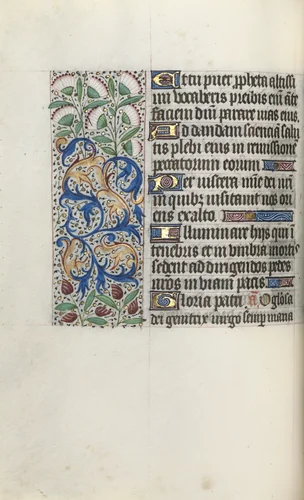 Et tu puer propheta altissi
mi vocaberis preibis enim ante
faciem dni parare vias eius.
Ad dandam scienciam salu
tis plebi eius in remissione
peccatorum eorum
Per viscera mie dei nri
in quibz visitauit nos ori
ens ex alto.
Illuminare hijs qui in
tenebris et in vmbra mortis
sedent ad dirigendos pedes
nros in viam pacis
Gloria patri. A. O gloriosa
dei genitrix virgo semp maria